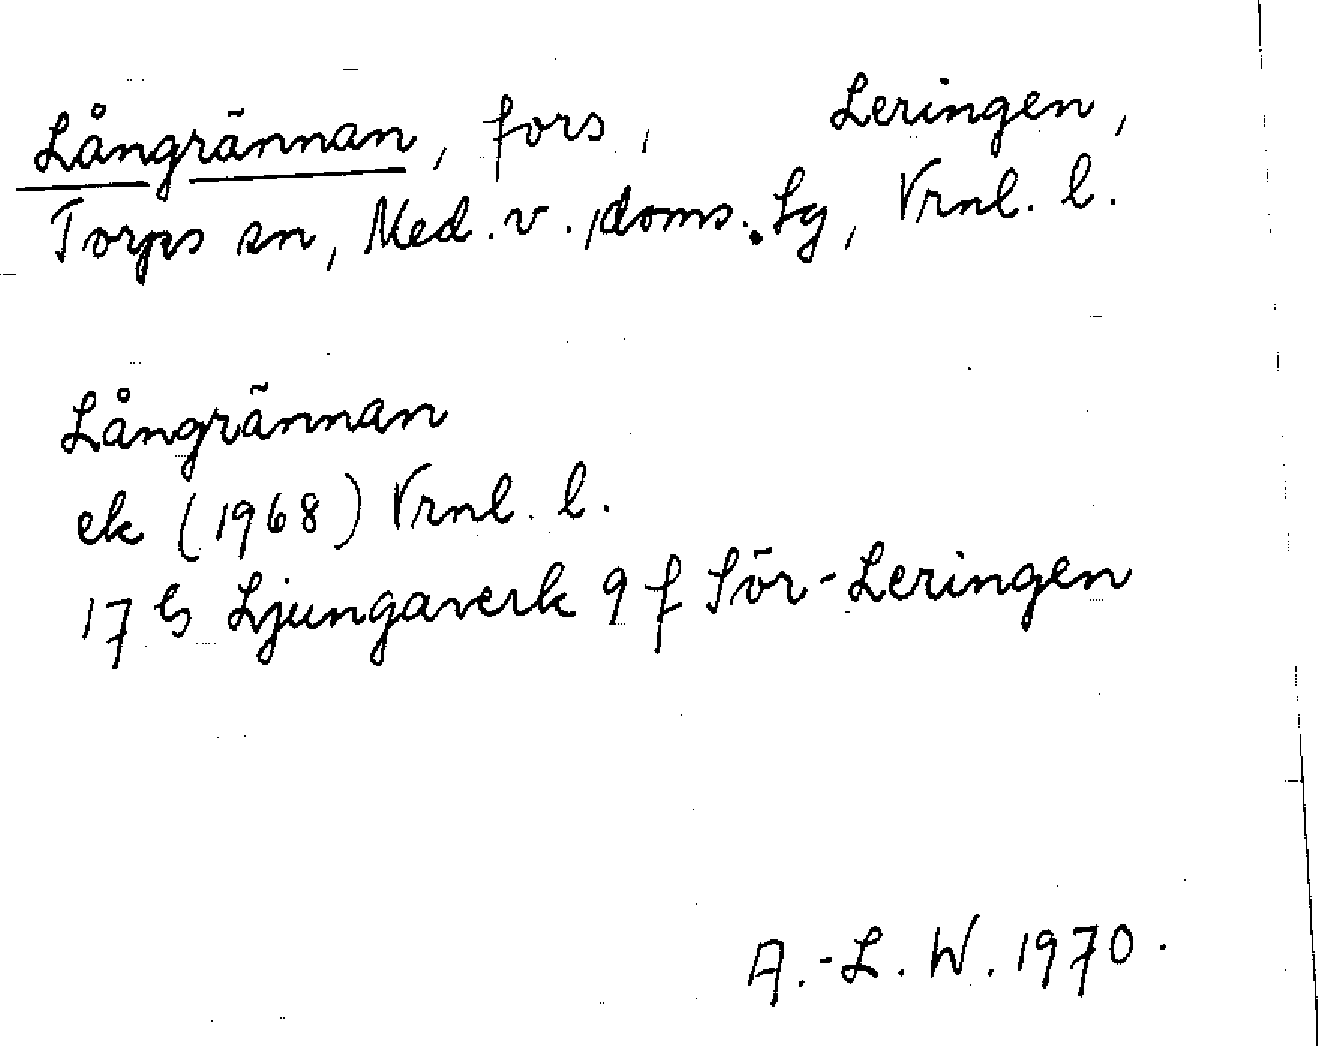 Långrännan, fors, Leringen,
Torps sn, Med. v. doms. sg, Vrnl. l.
Långrännan
ek (1968) Vrnl. l.
17 G Ljungaverk 9 f Sör-Leringen
A.-L. W. 1970.